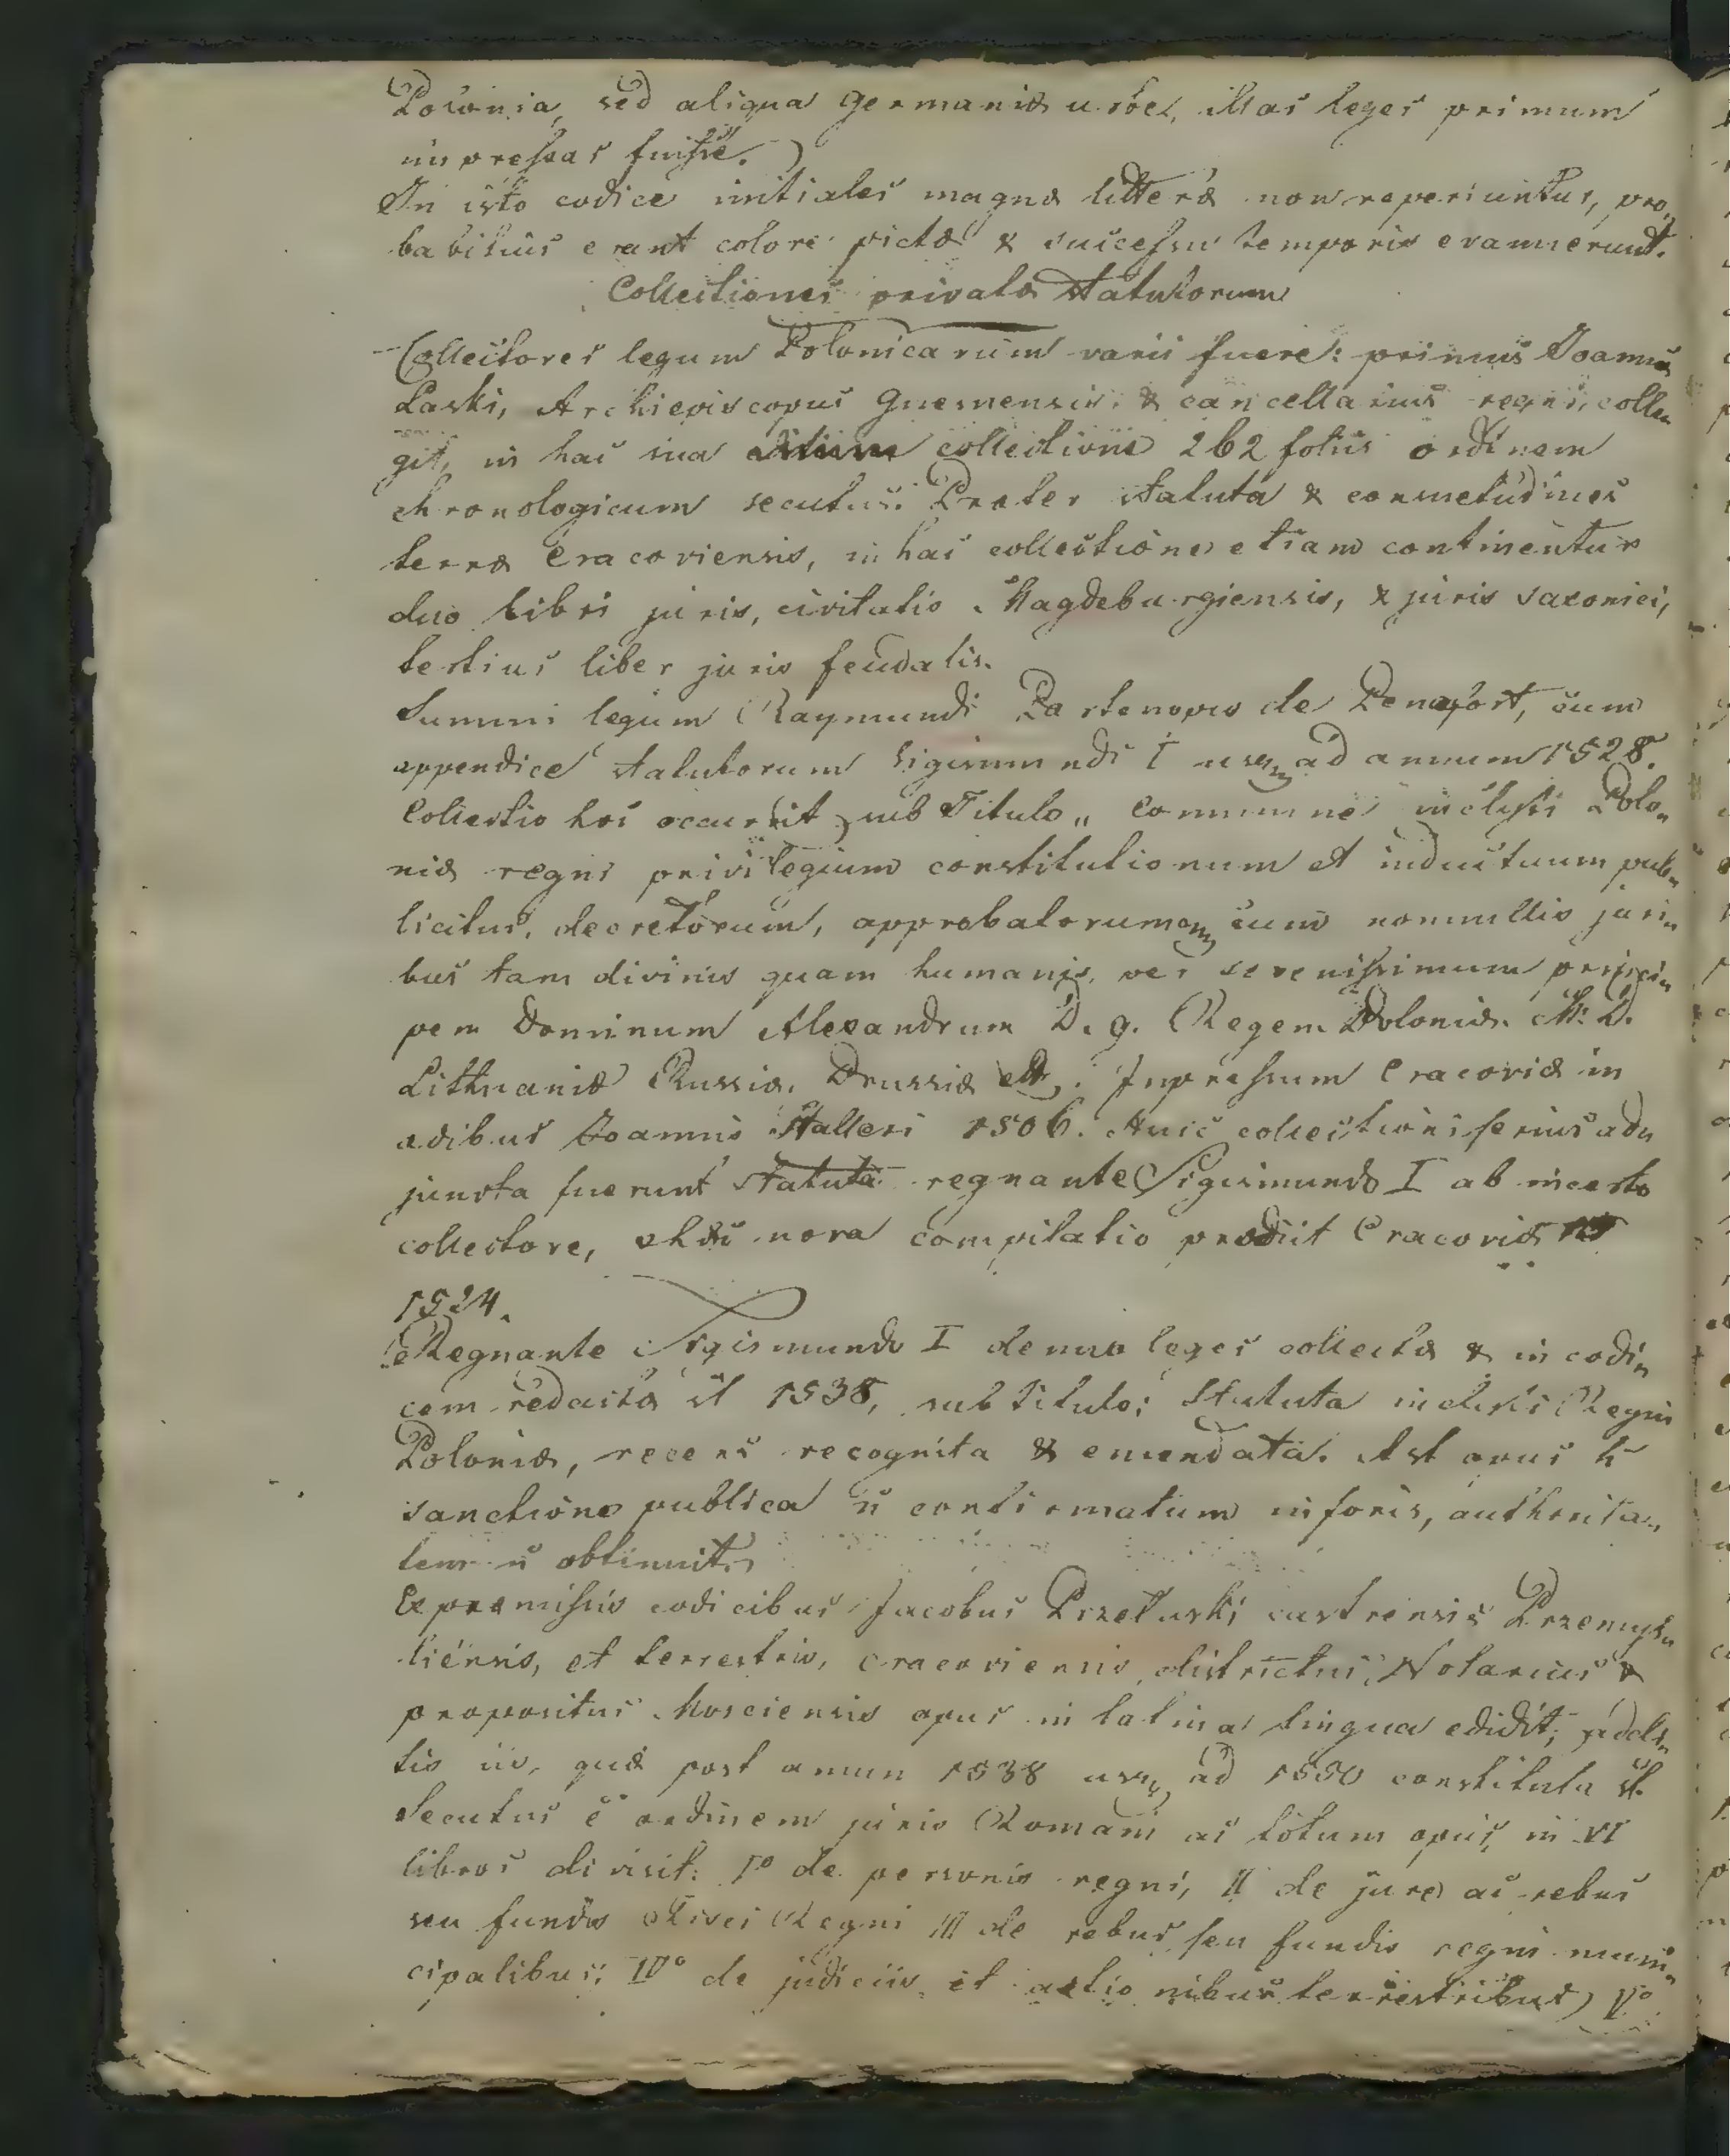 Polonia, sed aliqua Germaniæ urbe, illas leges primum
impressas fuisse.)
In isto codice initiales magnæ litteræ non reperiuntur, pro„
babilius erant colore pictæ & successu temporis evanuerunt.
Collectiones privatæ Statutorum
Collectores legum Polonicarum varii fuere: primus Joannes
Laski, Archiepiscopus Gnesnensis & cancellarius regni, colle„
git, in hac sua collectione 262 foliis ordinem
chronologicum secutus. Præter statuta & consuetudines
terræ Cracoviensis, in hac collectione etiam continentur
duo libri juris, civitatis Magdeburgiensis, & juris saxonici,
tertius liber juris feudalis.
Summi legum Raymundi Partenopes de Penafort, cum
appendice statutorum Sigismundi I usq ad annum 1528.
Collectio hæc occurrit sub Titulo „ Commune inclyti Polo„
niæ regni privilegium constitutionum et inductuum pub„
licitus, decretorum, approbatorumq cum nonnullis juri„
bus tam divinis quam humanis, per serenissimum princi„
pem Dominum Alexandrum D. g. Regem Poloniæ. M. D.
Lithuaniæ Russiæ, Prussiæ etc. Impressum Cracoviæ in
ædibus Joannis Halleri 1506. Huic collectioni serius ad„
juncta fuerunt statuta regnante Sigismundo I ab incerto
collectore, nova compilatio prodiit Cracoviæ
1524.
Regnante Sigismundo I denuo leges collectæ & in codi„
cem redactæ st 1538, sub titulo; Statuta inclyti Regni
Poloniæ, recens recognita & emendata. Ast opus h
sanctione publica ñ confirmatum in foris, authorita„
tem ñ obtinuit.
Ex præmissis codicibus Jacobus Przełuski castrensis Przemysl„
liensis, et terrestris, cracoviensis districtus, Notarius &
præpositus Mosciensis opus in latina lingua edidit; addi„
tis iis, quæ post annum 1538 usq ad 1550 constituta st.
Secutus ē ordinem juris Romani ac totum opus, in VI
libros divisit: Iº de personis regni, II de jure ac rebus
seu fundis Regni III de rebus seu fundis regni muni„
cipalibus; IVº de judiciis et actionibus terrestribus, Vº